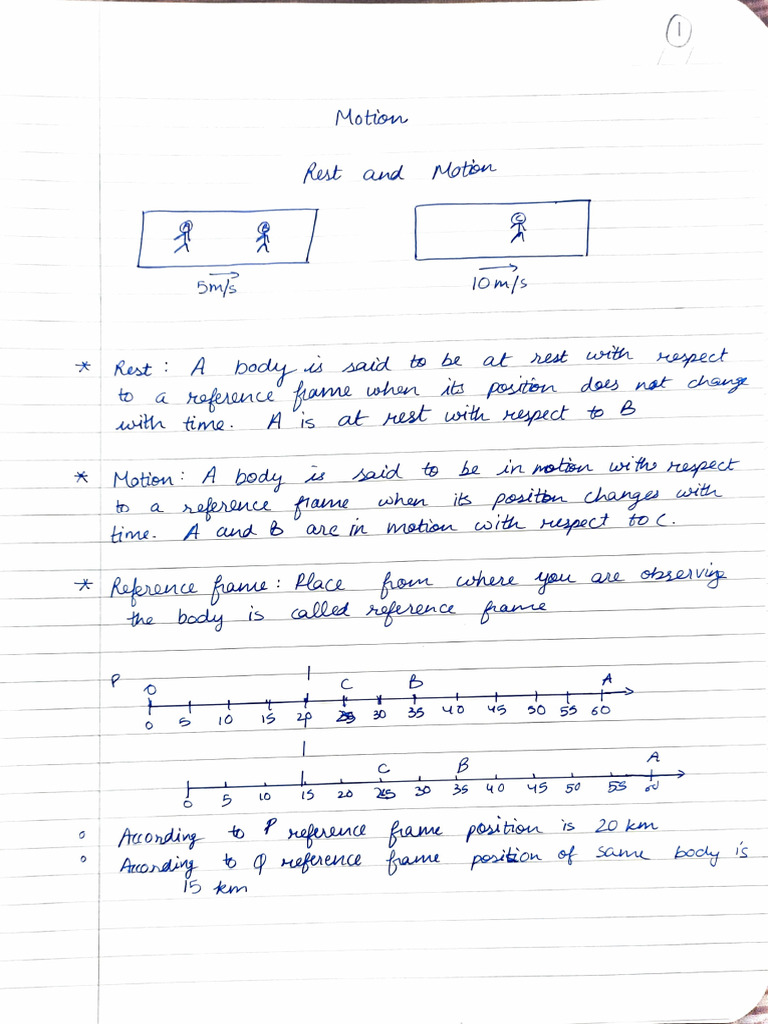 1
Motion
Rest and Motion
A B C
5m/s 10m/s
* Rest : A body is said to be at rest with respect
to a reference frame when its position does not change
with time. A is at rest with respect to B
* Motion : A body is said to be in motion with respect
to a reference frame when its position changes with
time. A and B are in motion with respect to C.
* Reference frame : Place from where you are observing
the body is called reference frame
P O C B A
0 5 10 15 20 25 30 35 40 45 50 55 60
C B A
0 5 10 15 20 25 30 35 40 45 50 55 60
o According to P reference frame position is 20 km
o According to Q reference frame position of same body is
15 km